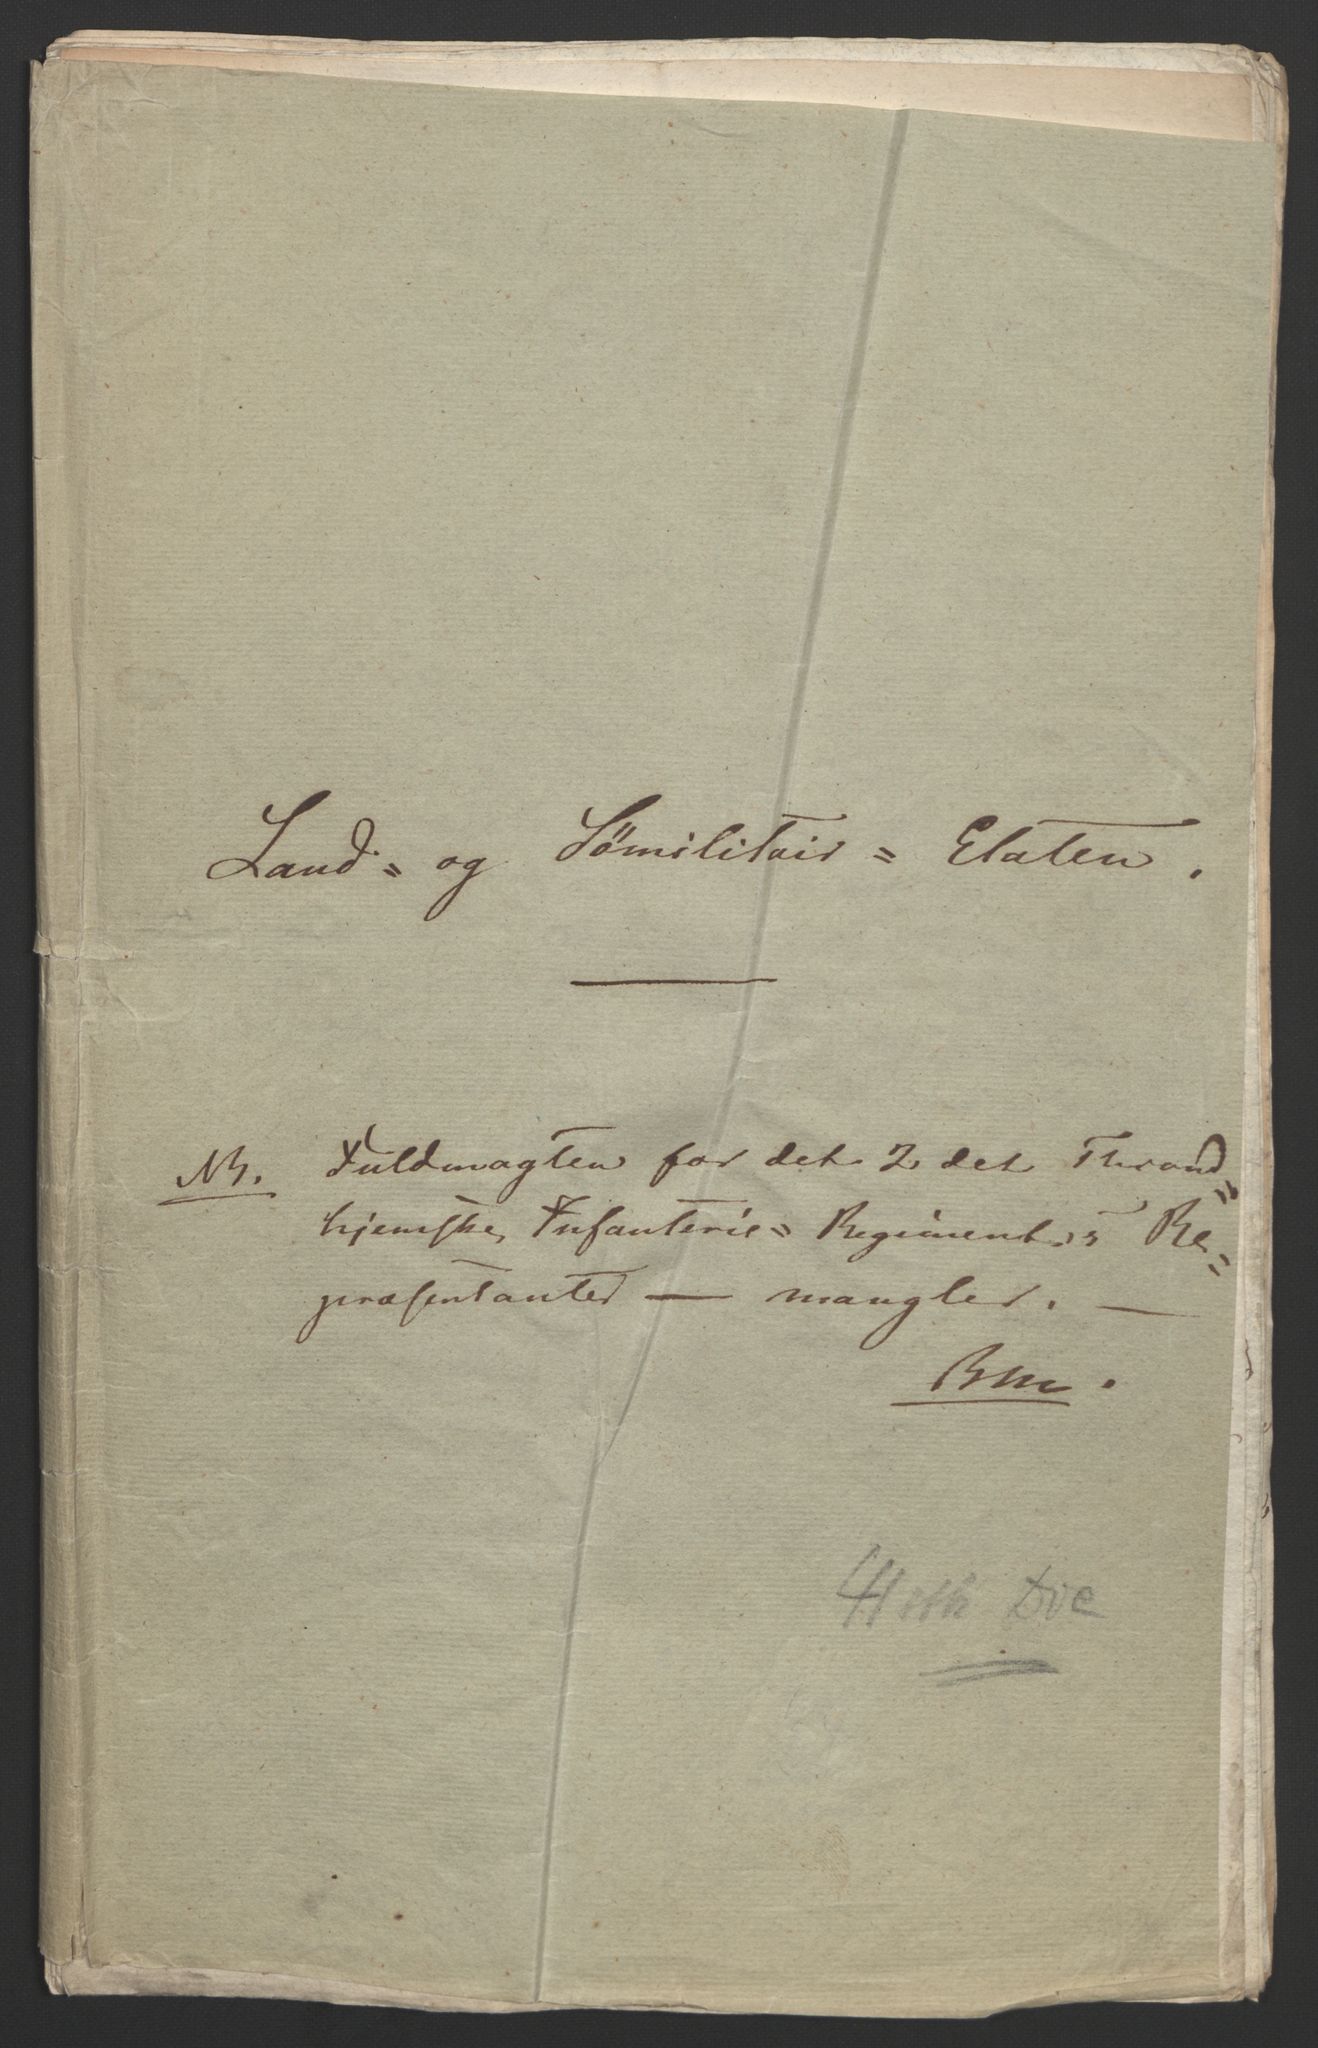 Land= og Sömilitair=Etaten.
NB. Fuldmagten for det 2det Thrond=
hjemske Infanterie=Regiments Re=
præsentanter — mangler. —
BM.